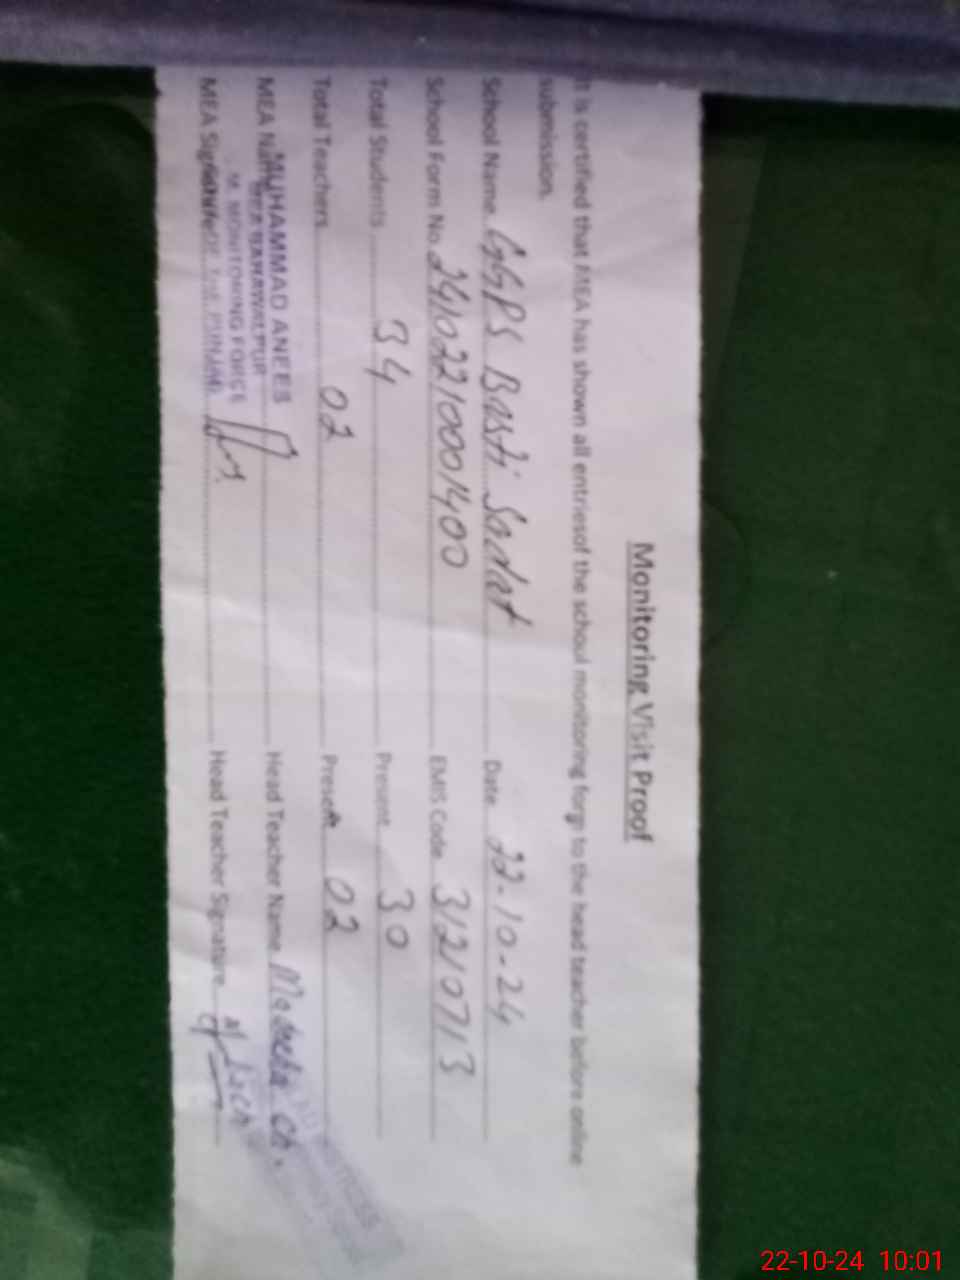 Monitoring Visit Proof
It is certified that MEA has shown all entriesof the school monitoring form to the head teacher before online
submission.
School Name GGPS Basti Sadat Date 22-10-24
School Form No. 24102210001400 EMIS Code 31210713
Total Students 34 Present 30
Total Teachers 02 Present 02
MEA Name MUHAMMAD ANEES Head Teacher Name Madeeha Ch.
MEA BAHAWALPUR
MONITORING FORCE
MEA Signature OF THE PUNJAB Head Teacher Signature
22-10-24 10:01